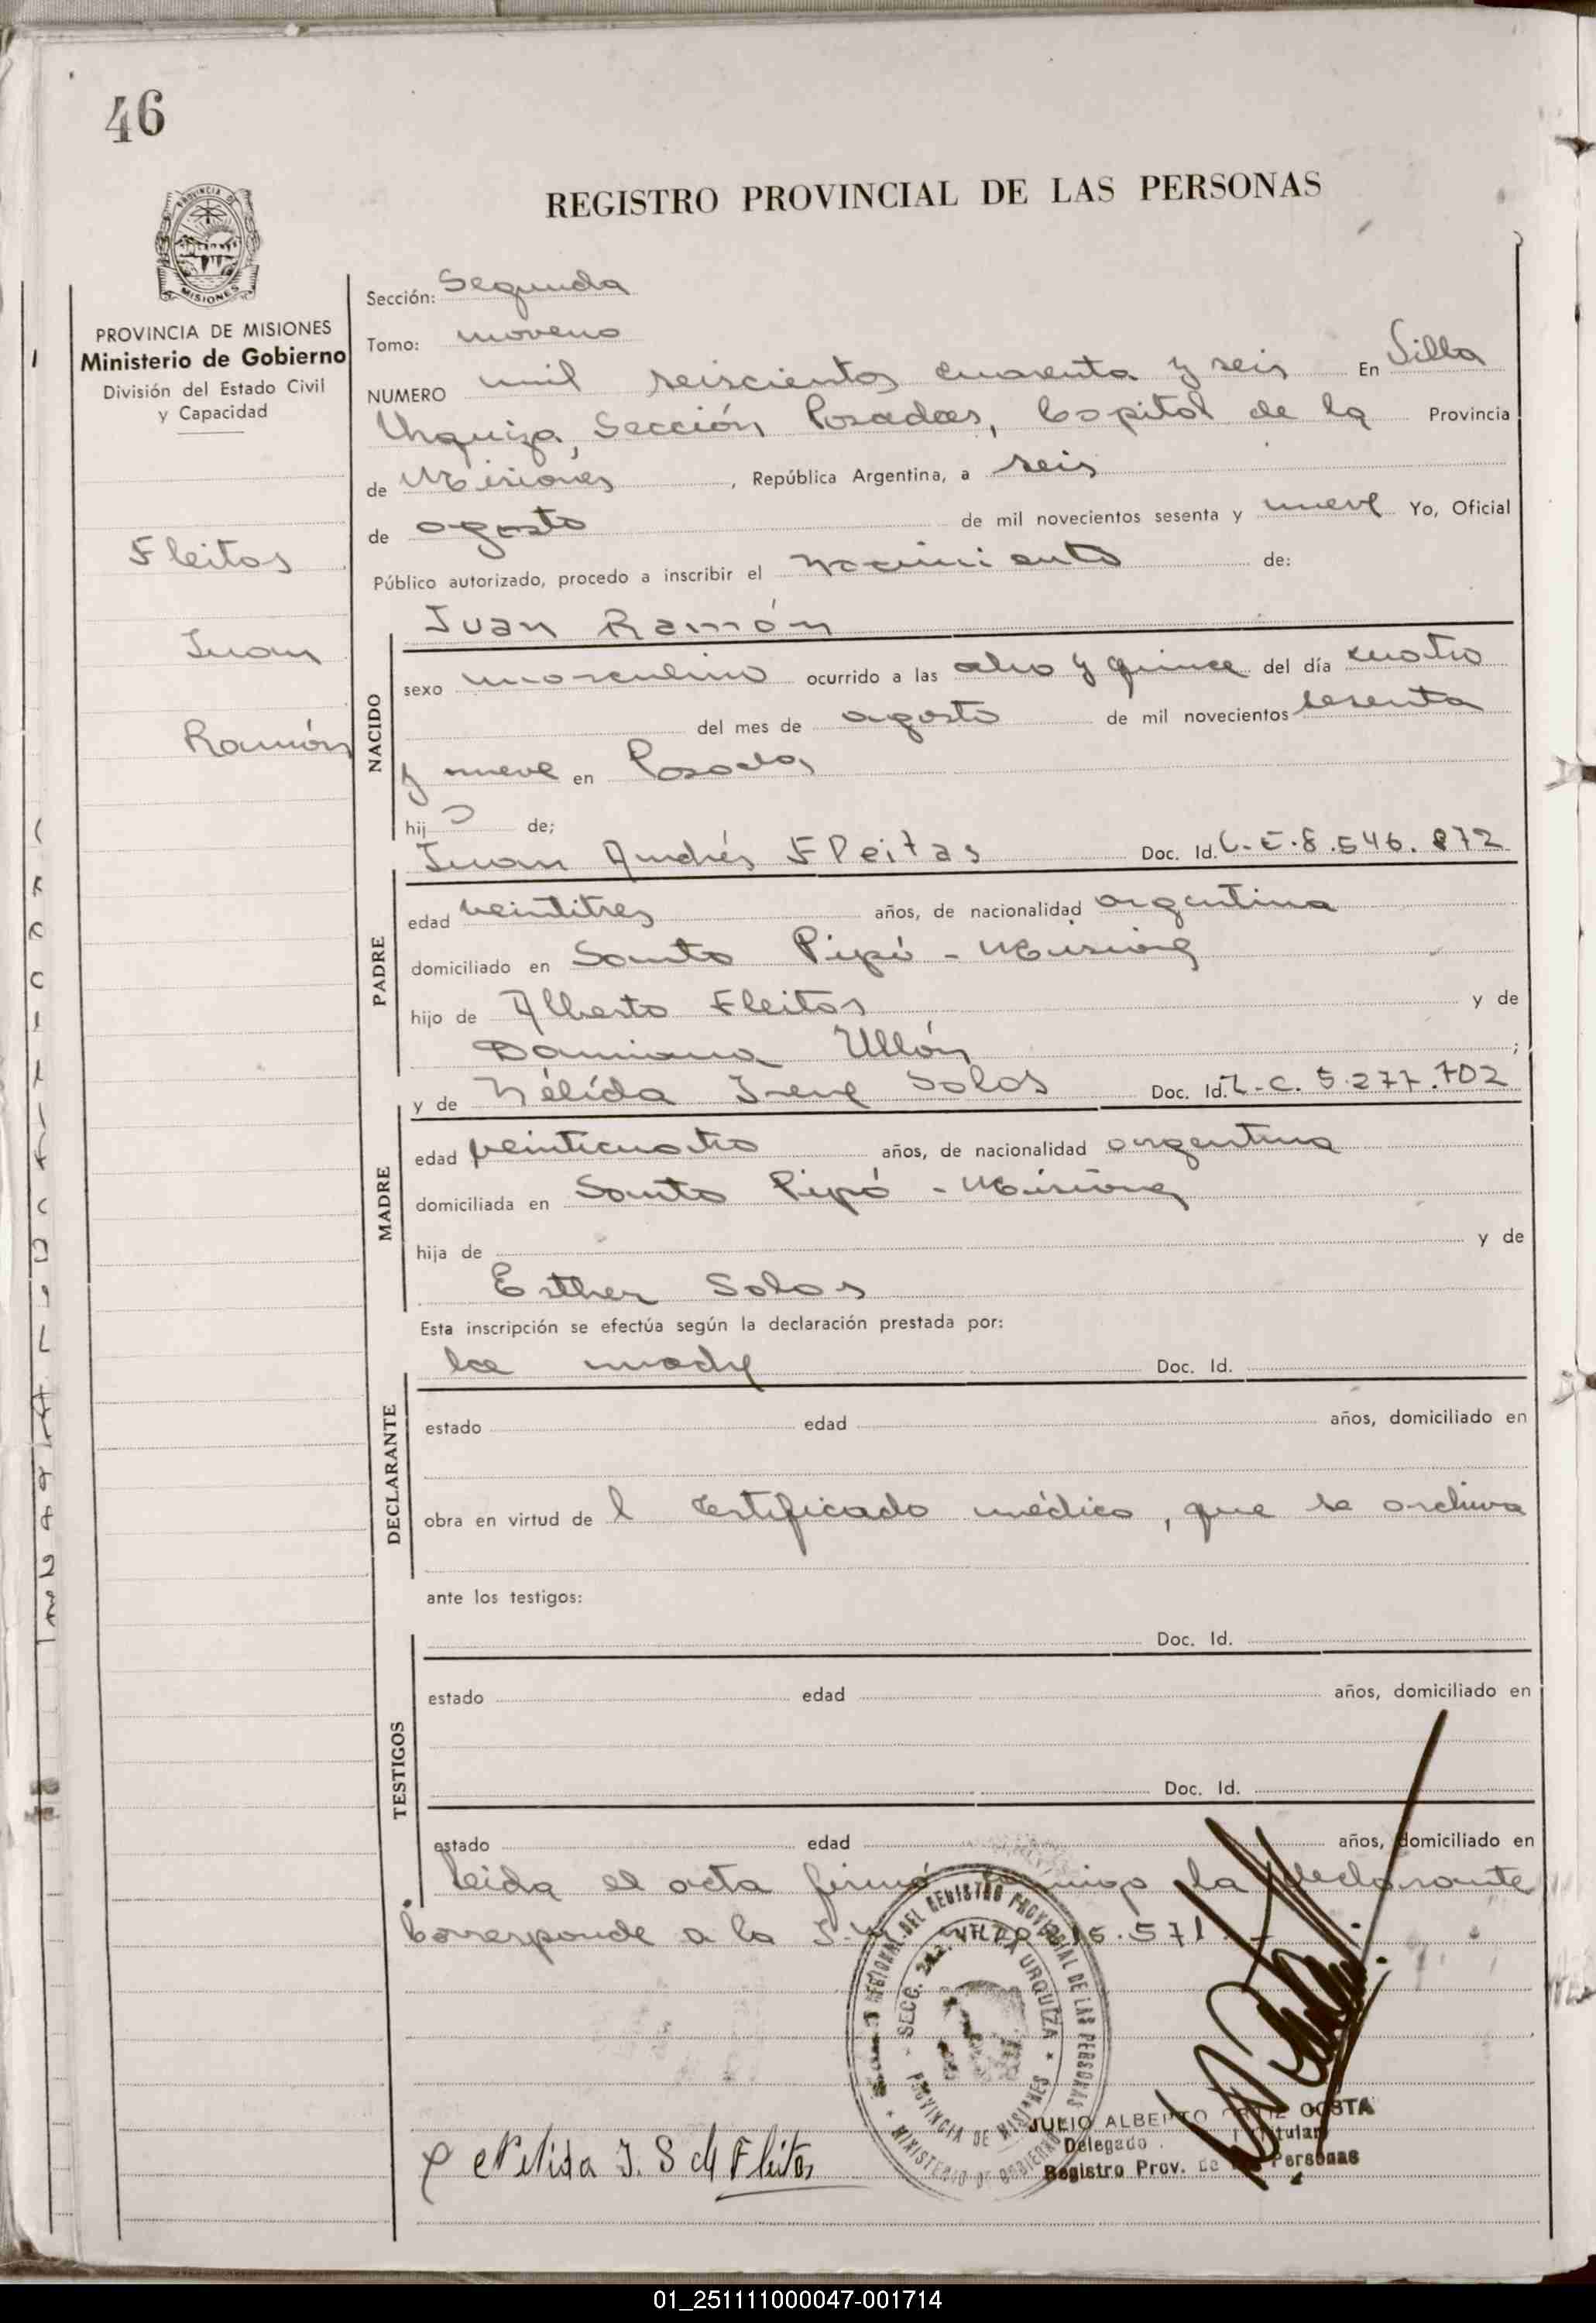 46
REGISTRO PROVINCIAL DE LAS PERSONAS
MISIONES
PROVINCIA DE MISIONES
Ministerio de Gobierno
División del Estado Civil
y Capacidad
Fleitas
Juan
Ramón
Sección: Segunda
Tomo: noveno
NUMERO mil seiscientos cuarenta y seis En Villa
Urquiza, Sección Posadas, Capital de la Provincia
de Misiones, República Argentina, a seis
de agosto de mil novecientos sesenta y nueve Yo, Oficial
Público autorizado, procedo a inscribir el nacimiento de:
Juan Ramón
NACIDO
sexo masculino ocurrido a las ocho y quince del día cuatro
del mes de agosto de mil novecientos sesenta
y nueve en Posadas
hijo de;
Juan Andrés Fleitas Doc. Id. L.E.8.546.872
PADRE
edad veintitres años, de nacionalidad argentina
domiciliado en Santo Pipó - Misiones
hijo de Alberto Fleitas y de
Damiana Ullón ;
y de Nélida Irene Solos Doc. Id. L.C. 5.277.702
MADRE
edad veinticuatro años, de nacionalidad argentina
domiciliada en Santo Pipó - Misiones
hija de y de
Esther Solos
Esta inscripción se efectúa según la declaración prestada por:
la madre Doc. Id.
DECLARANTE
estado edad años, domiciliado en
obra en virtud de l certificado médico, que se archiva
ante los testigos:
Doc. Id.
TESTIGOS
estado edad años, domiciliado en
Doc. Id.
estado edad años, domiciliado en
Leida el acta firmó conmigo la declarante
Corresponde a la 5.571.-
REGIONAL DEL REGISTRO PROVINCIAL DE LAS PERSONAS
SECC. 2a. VILLA URQUIZA
PROVINCIA DE MISIONES
MINISTERIO DE GOBIERNO
JULIO ALBERTO COSTA
Delegado Titular
Registro Prov. de Personas
Nelida I. S de Fleitas
01_251111000047-001714